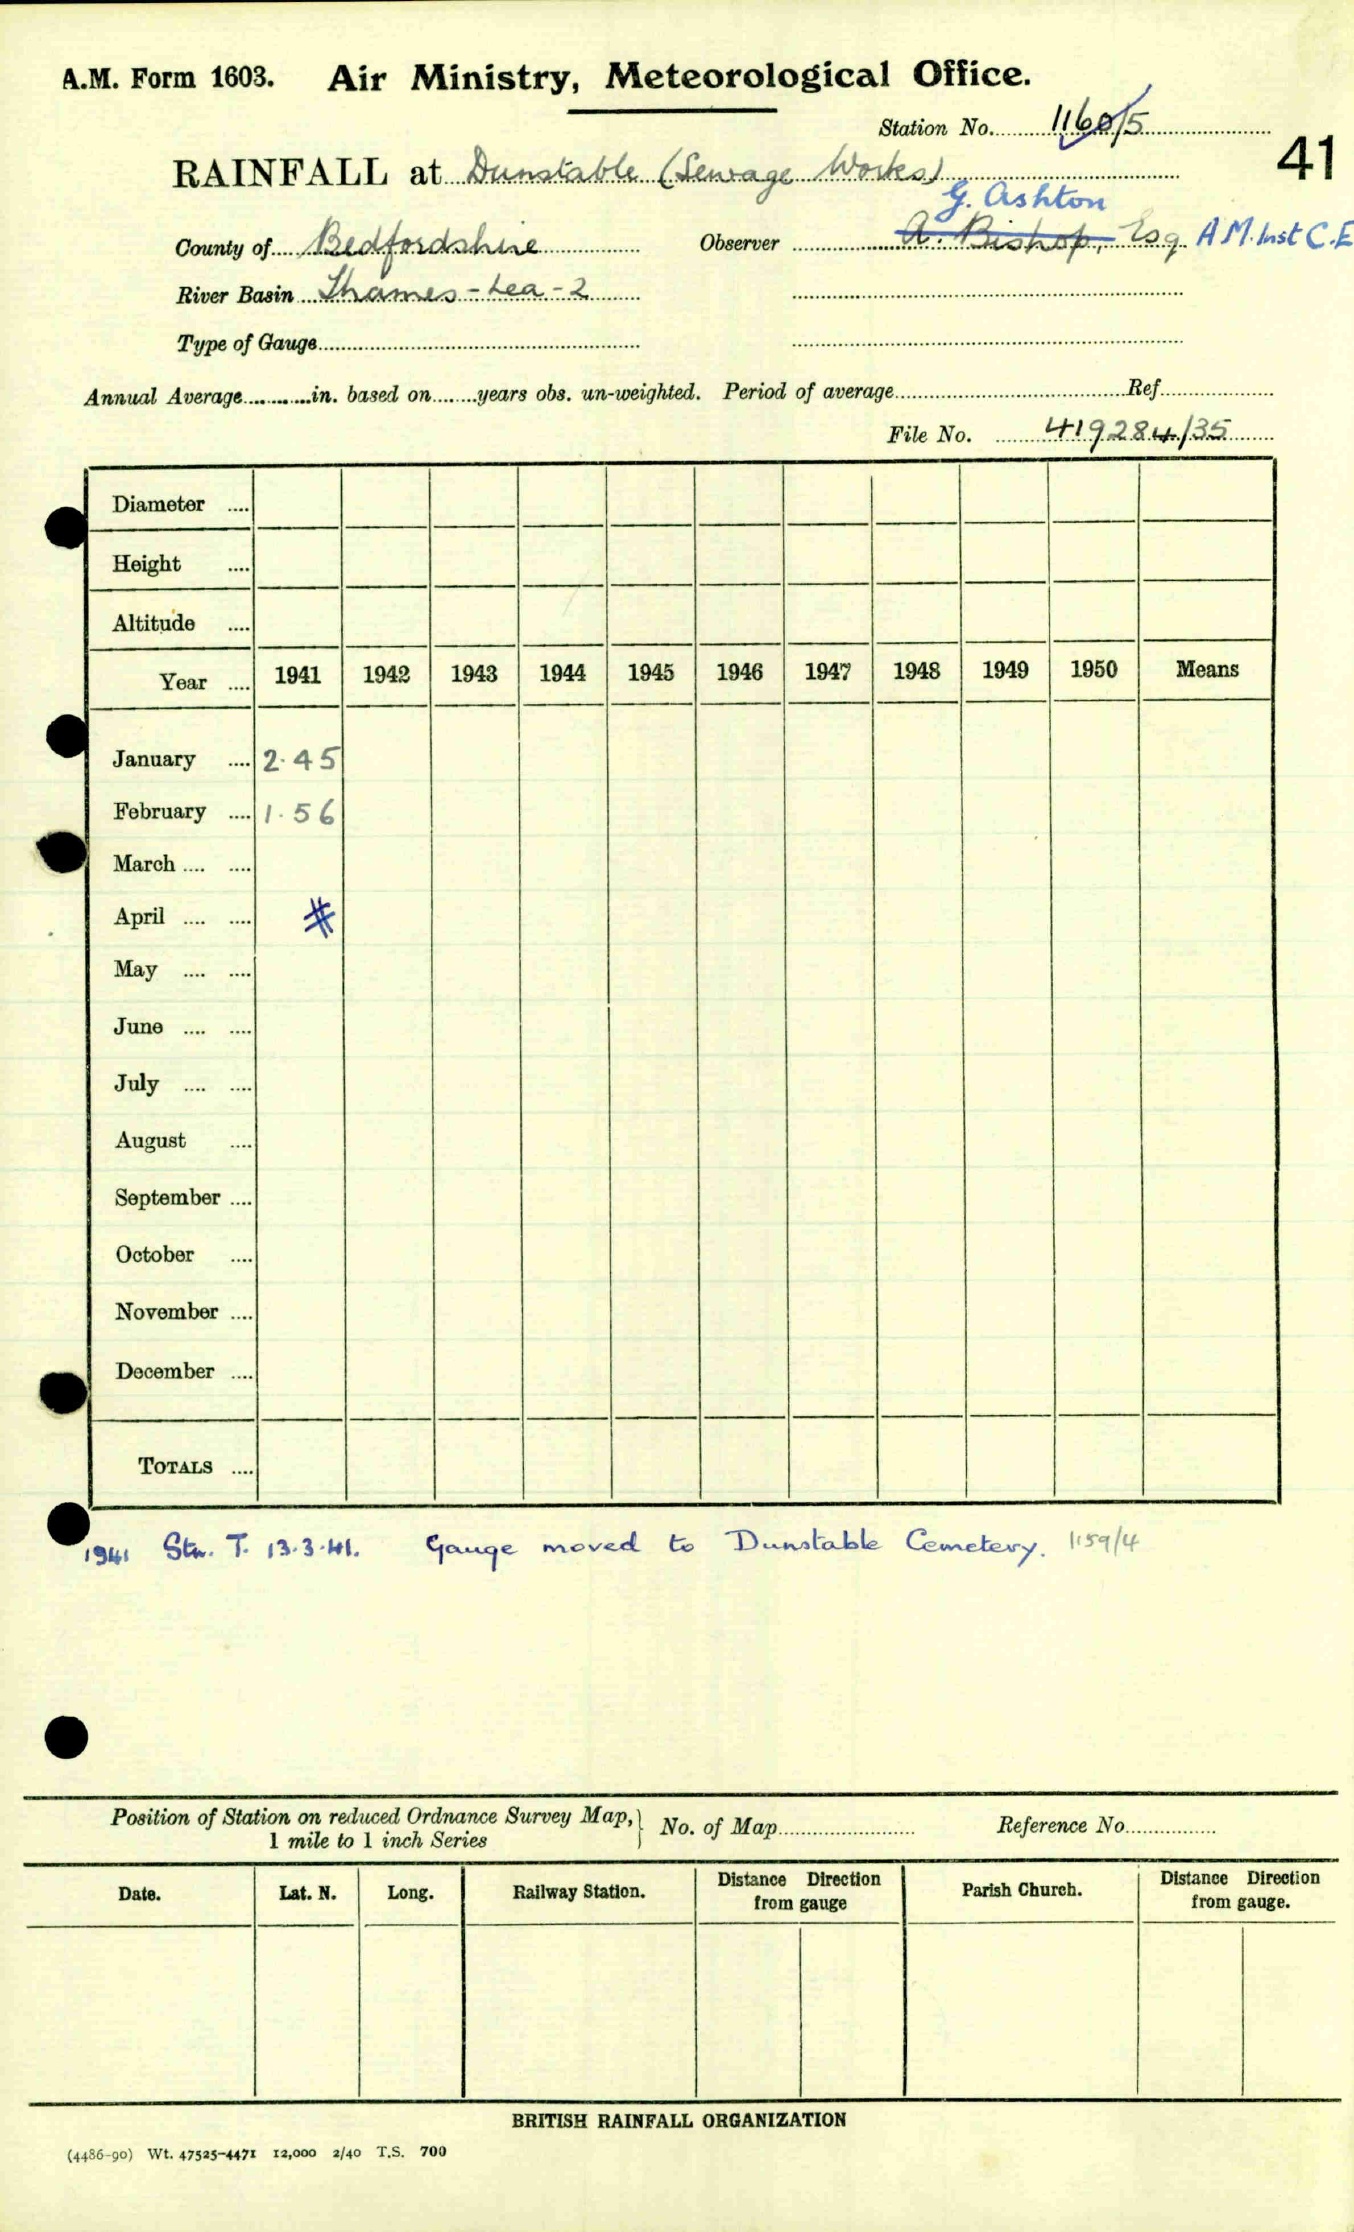 A.M. Form 1603. Air Ministry, Meteorological Office.
Station No. 1160/5
41
RAINFALL at Dunstable (Sewage Works)
G. Ashton
County of Bedfordshire Observer A. Bishop, Esq A.M.Inst C.E
River Basin Thames-Lea-2
Type of Gauge
Annual Average in. based on years obs. un-weighted. Period of average Ref
File No. 419284/35
Diameter
Height
Altitude
Year 1941 1942 1943 1944 1945 1946 1947 1948 1949 1950 Means
January 2.45
February 1.56
March
April #
May
June
July
August
September
October
November
December
TOTALS
1941 Stn. T. 13.3.41. Gauge moved to Dunstable Cemetery. 1159/4
Position of Station on reduced Ordnance Survey Map, } No. of Map Reference No
1 mile to 1 inch Series
Date. Lat. N. Long. Railway Station. Distance Direction from gauge Parish Church. Distance Direction from gauge.
BRITISH RAINFALL ORGANIZATION
(4486-90) Wt. 47525-4471 12,000 2/40 T.S. 700